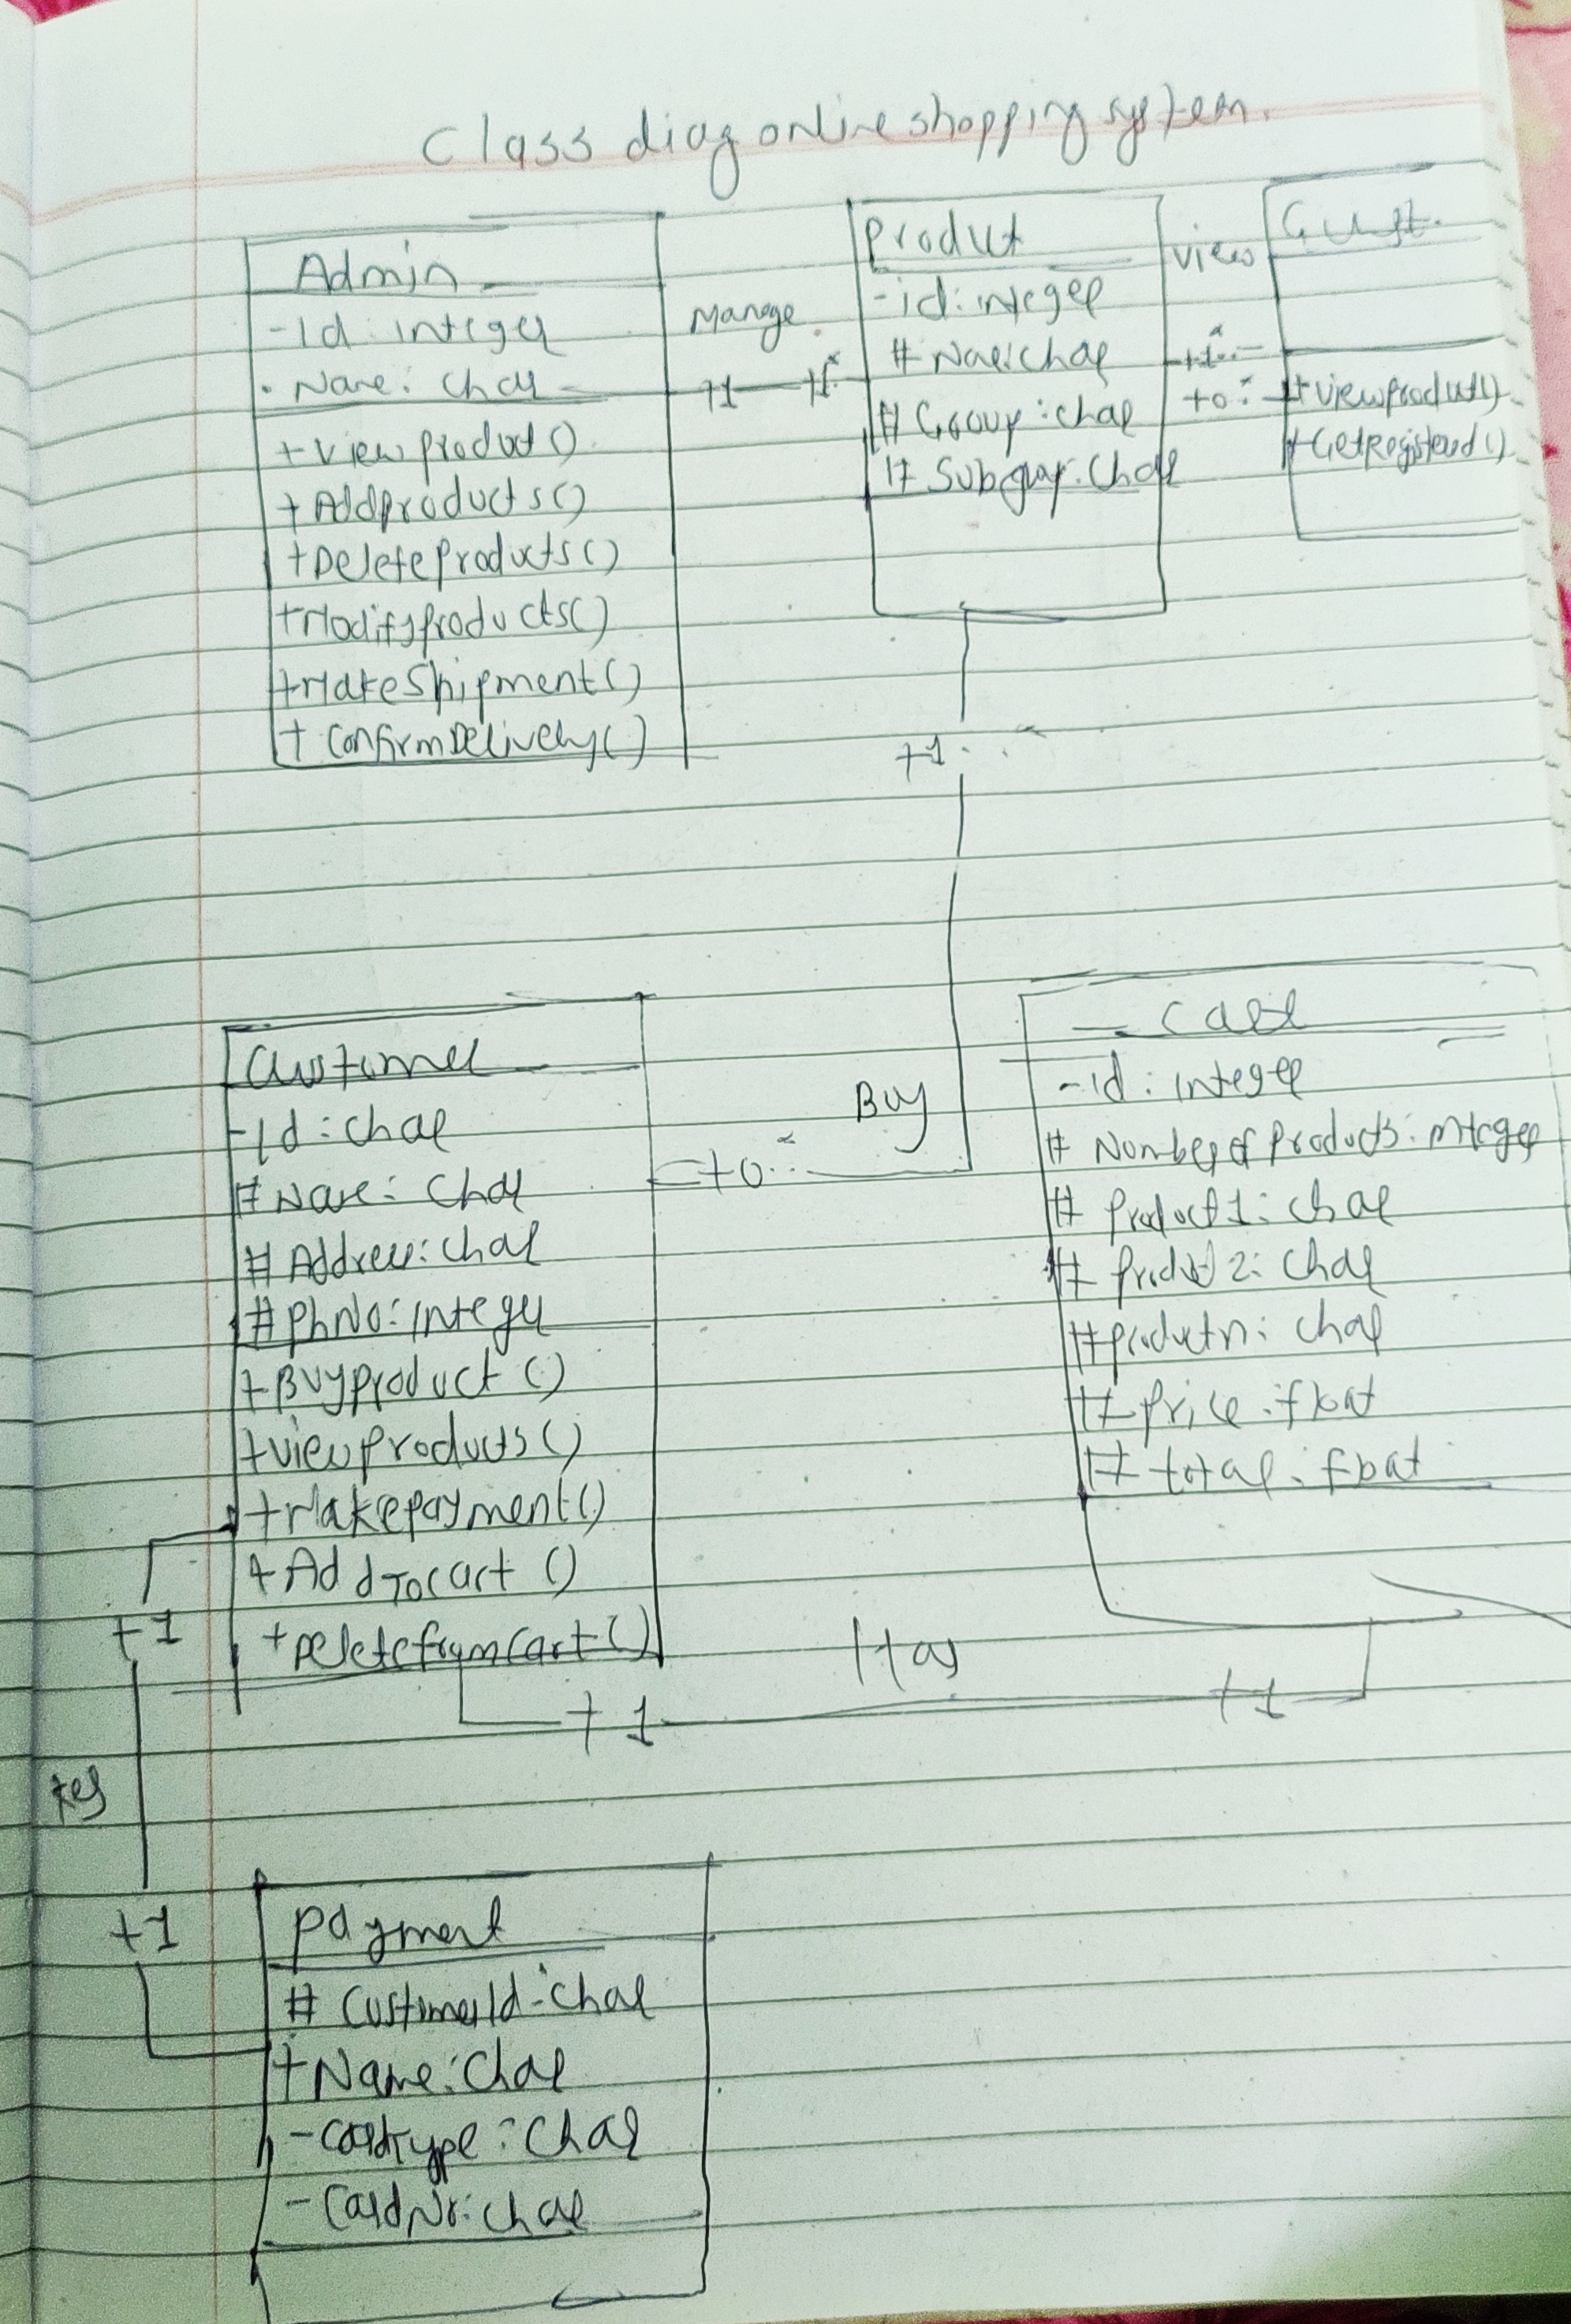 Class diag online shopping system.
Admin
-Id: integer
- Name: char
+ View product()
+ Addproducts()
+Deleteproducts()
+Modifyproducts()
+MakeShipment()
+ ConfirmDelivery()
Manage
+1 +1..*
Product
-id: integer
# Name: char
# Group: char
# Subgroup: char
view
+1..*
+0..*
Guest
+ viewproduct()
+GetRegistered()
+1..*
Customer
-Id: char
#Name: char
# Address: char
#PhNo: integer
+Buyproduct ()
+viewproducts()
+Makepayment()
+AddTocart ()
+Deletefromcart()
Buy
+0..*
Cart
-id: integer
# Number of Products: integer
# Product1: char
# Product2: char
#productn: char
# price: float
# total: float
Has
+1 +1
+1
+1
payment
# CustomerId: char
+Name: char
-cardtype: char
-CardNo: char